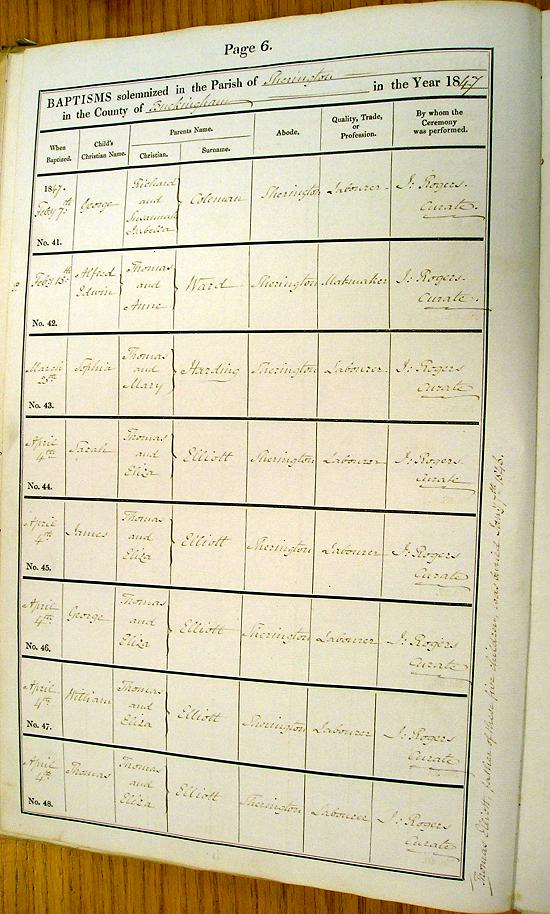 Page 6.
BAPTISMS solemnized in the Parish of Sherington
in the County of Buckingham in the Year 1847
When Baptized. Child's Christian Name. Parents Name. Christian. Surname. Abode. Quality, Trade, or Profession. By whom the Ceremony was performed.
1847. Feby 7th No. 41. George Richard and Susannah Isabella Coleman Sherington Labourer J: Rogers. Curate.
Feby 15th No. 42. Alfred Edwin Thomas and Anne Ward Sherington Matmaker J: Rogers. Curate.
March 28th No. 43. Sophia Thomas and Mary Harding Sherington Labourer J: Rogers Curate
April 4th No. 44. Sarah Thomas and Eliza Elliott Sherington Labourer J: Rogers. Curate
April 4th No. 45. James Thomas and Eliza Elliott Sherington Labourer J: Rogers Curate
April 4th No. 46. George Thomas and Eliza Elliott Sherington Labourer J: Rogers Curate
April 4th No. 47. William Thomas and Eliza Elliott Sherington Labourer J: Rogers Curate
April 4th No. 48. Thomas Thomas and Eliza Elliott Sherington Labourer J: Rogers Curate
Thomas Elliott, father of these five children, was buried Jany